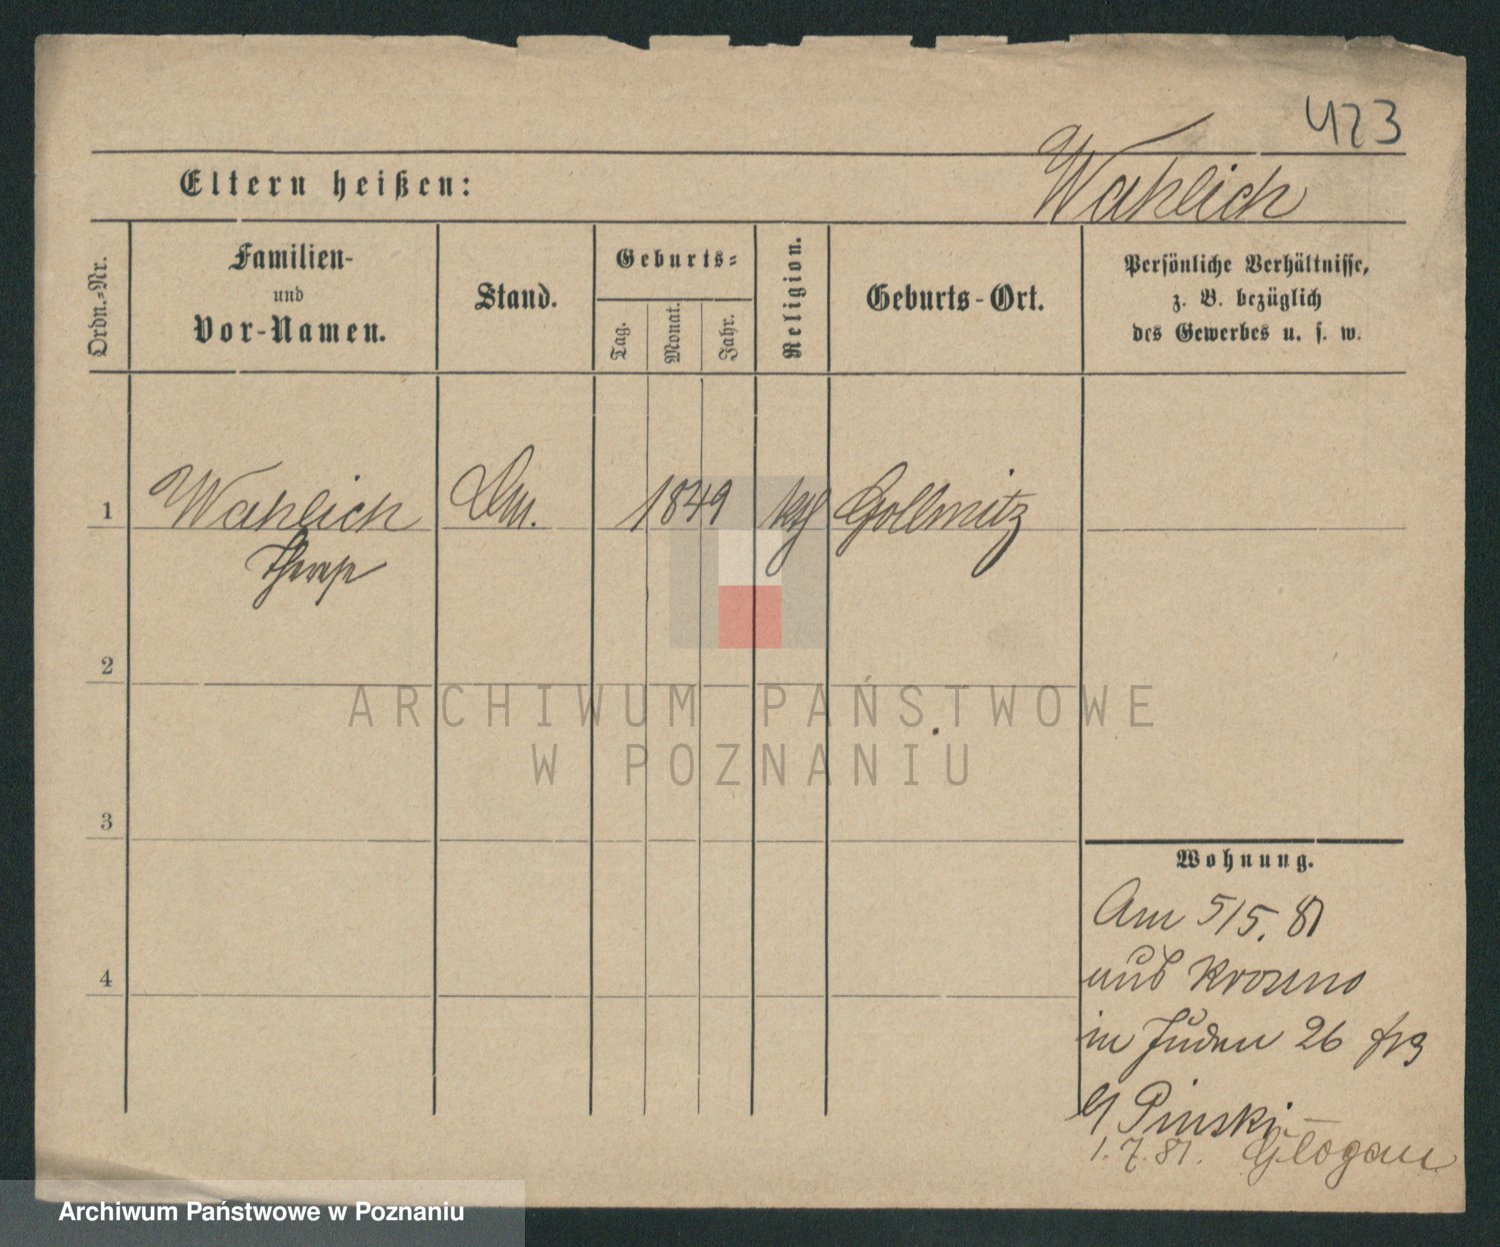 423
Wahlich
Eltern heißen:
Ordn.-Nr.
Familien-
und
Vor-Namen.
Stand.
Geburts-
Tag.
Monat.
Jahr.
Religion.
Geburts-Ort.
Persönliche Verhältnisse,
z. B. bezüglich
des Gewerbes u. s. w.
1 Wahlich 1849 kth Gollmitz
Therese
2
3
4
ARCHIWUM PAŃSTWOWE
W POZNANIU
Wohnung.
Am 5/5. 81
aus Krosno
in Juden 26
Pinski
1.7.81. Glogau
Archiwum Państwowe w Poznaniu